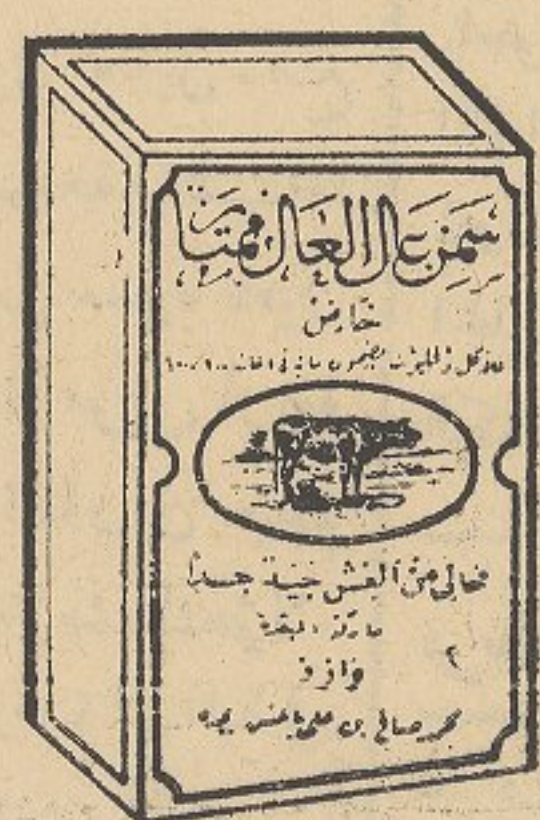 سمن عال العال ممتاز
خاص
للاكل والحليات مضمون مائة في المائة ١٠٠/١٠٠
خالي من الغش جنية جداً
ماركة البقرة
٢
وارد
محمد صالح بن علي باعشن بجده